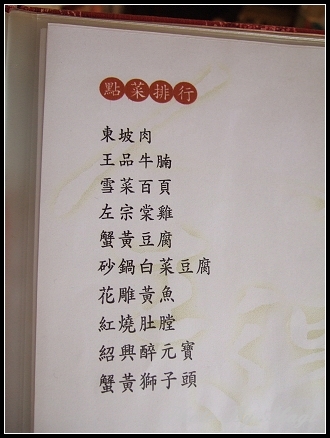 點菜排行
東坡肉
王品牛腩
雪菜百頁
左宗棠雞
蟹黃豆腐
砂鍋白菜豆腐
花雕黃魚
紅燒肚膛
紹興醉元寶
蟹黃獅子頭